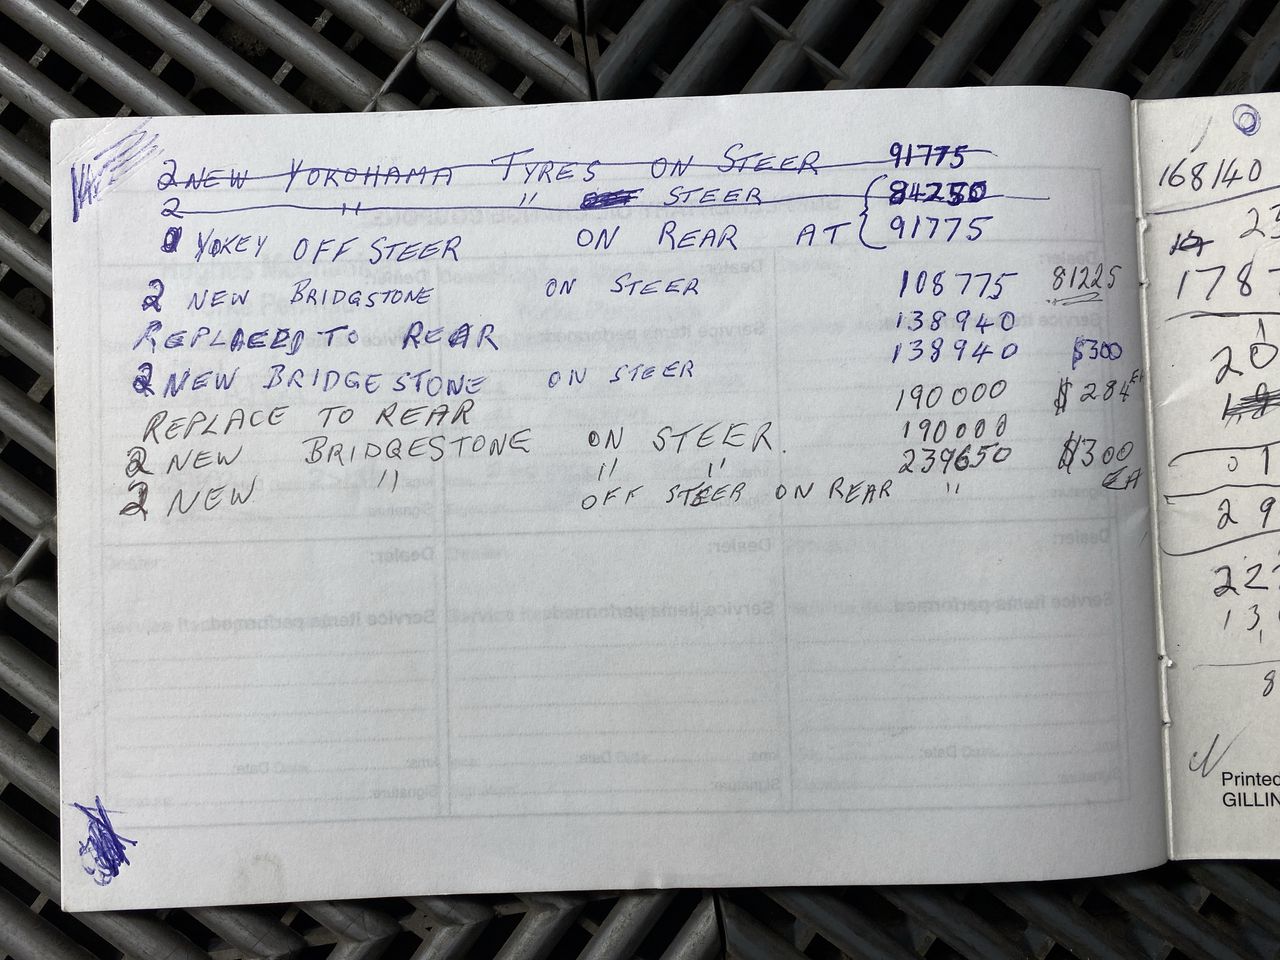 2 NEW YOKOHAMA TYRES ON STEER 91775
2 " " STEER 84250
YOKEY OFF STEER ON REAR AT 91775
2 NEW BRIDGSTONE ON STEER 108775 81225
REPLACED TO REAR 138940
2 NEW BRIDGESTONE ON STEER 138940 $300
REPLACE TO REAR 190000 $284 EA
2 NEW BRIDGESTONE ON STEER. 190000
2 NEW " " " 239650 $300 EA
OFF STEER ON REAR "
Dealer:
Dealer:
Dealer:
Service items performed:
Service items performed:
Service items performed:
kms:
Date:
kms:
Date:
Date:
Signature:
Signature:
Signature:
168140
23
178
20
01
29
22
13
8
Printed
GILLIN